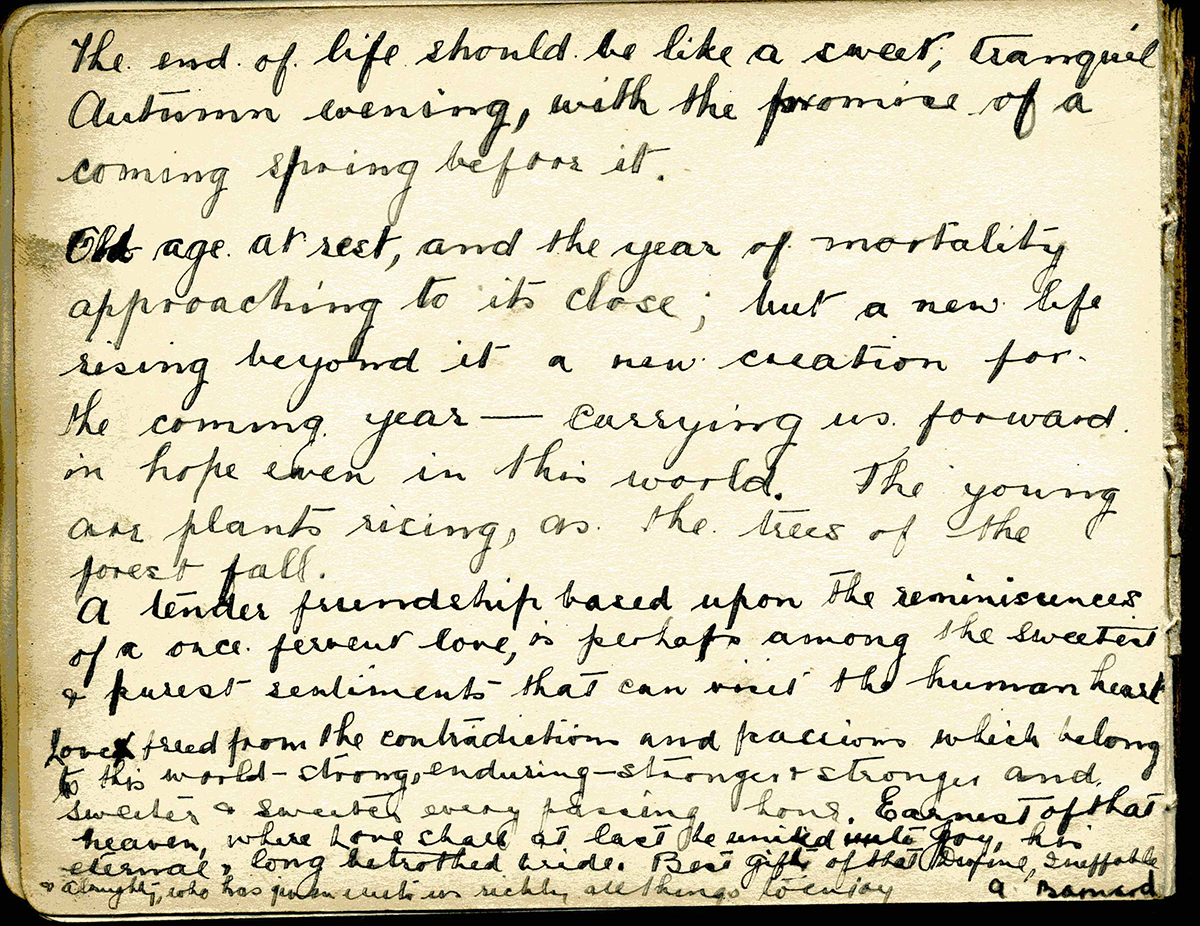 The end of life should be like a sweet, tranquil
Autumn evening, with the promise of a
coming spring before it.
Old age at rest, and the year of mortality
approaching to its close; but a new life
rising beyond it a new creation for
the coming year — carrying us forward
in hope even in this world. The young
are plants rising, as the trees of the
forest fall.
A tender friendship based upon the reminiscences
of a once fervent love, is perhaps among the sweetest
& purest sentiments that can visit the human heart
Love freed from the contradictions and passions which belong
to this world – strong, enduring – stronger & stronger and
sweeter & sweeter every passing hour. Earnest of that
heaven, where Love shall at last be united unto Joy, his
eternal & long betrothed bride. Best gift of that Divine, Ineffable
& Almighty, who has given unto us richly all things to enjoy
A. Barnard